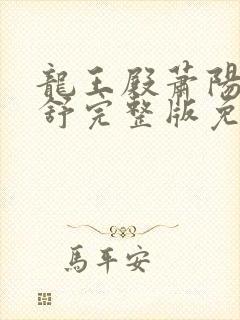 龍王殿蕭陽
舒完整版免
馬平安